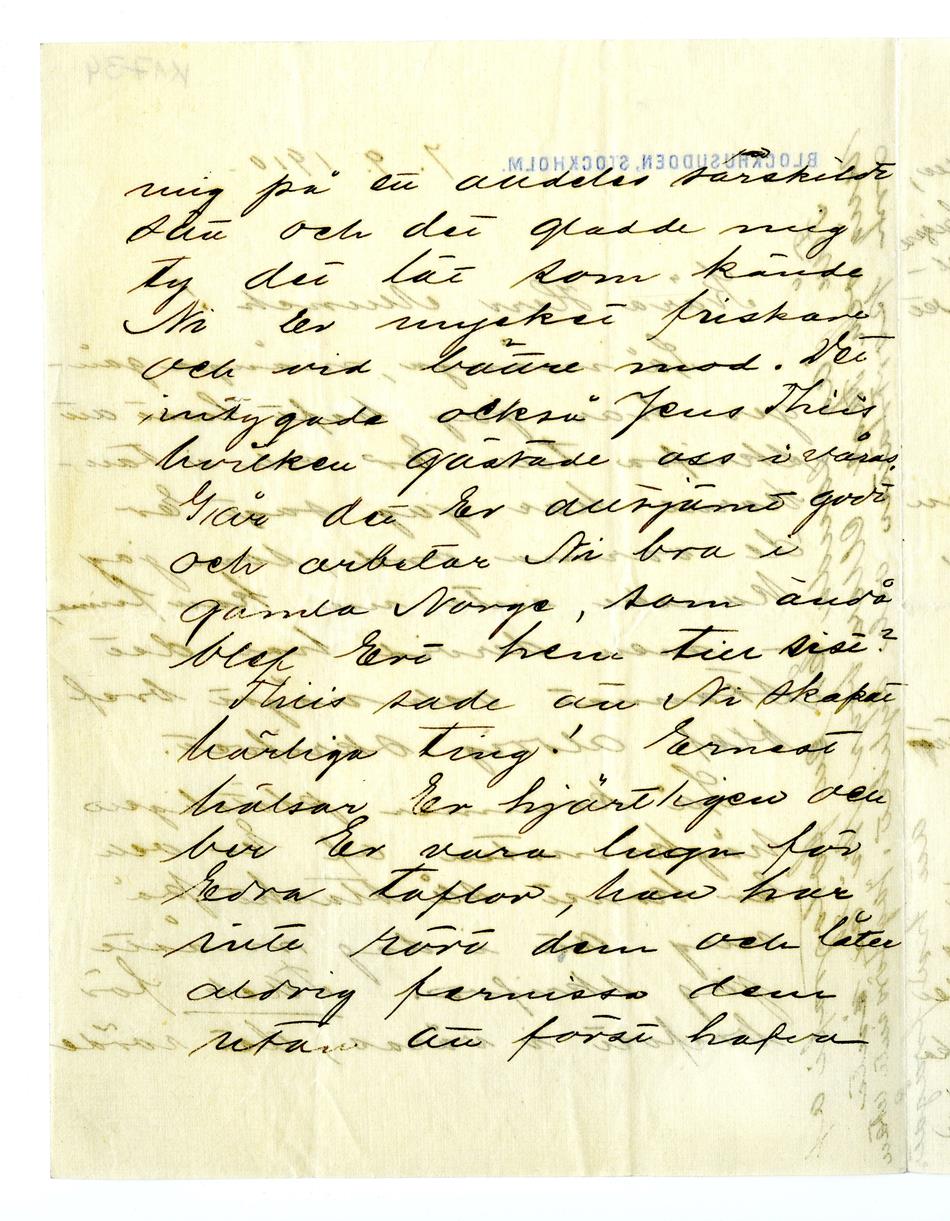 mig på ett alldeles särskildt
sätt och det gladde mig
ty det lät som kände
Ni Er mycket friskare
och vid bättre mod. Det
intygade också Jens Thiis
hvilken gästade oss i våras.
Går det Er alltjämt godt
och arbetar Ni bra i
gamla Norge, som ändå
blef Ert hem till sist?
Thiis sade att Ni skapat
härliga ting! Ernest
hälsar Er hjärtligen och
ber Er vara lugn för
Edra taflor, han har
inte rört dem och låter
aldrig fernissa dem
utan att först hafva